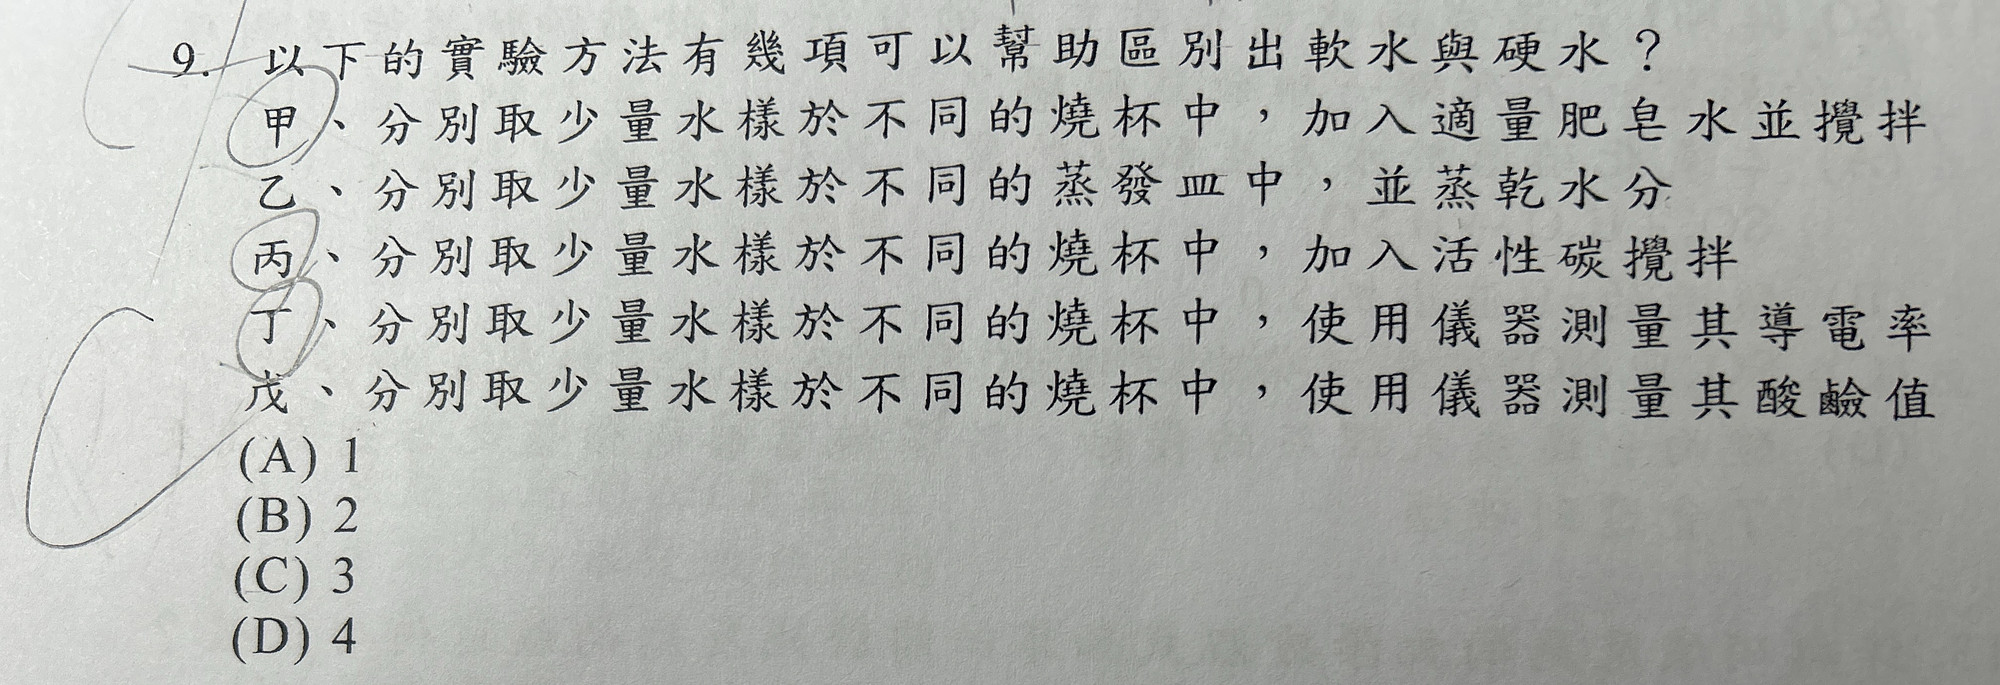 9. 以下的實驗方法有幾項可以幫助區別出軟水與硬水？
甲、分別取少量水樣於不同的燒杯中，加入適量肥皂水並攪拌
乙、分別取少量水樣於不同的蒸發皿中，並蒸乾水分
丙、分別取少量水樣於不同的燒杯中，加入活性碳攪拌
丁、分別取少量水樣於不同的燒杯中，使用儀器測量其導電率
戊、分別取少量水樣於不同的燒杯中，使用儀器測量其酸鹼值
(A) 1
(B) 2
(C) 3
(D) 4